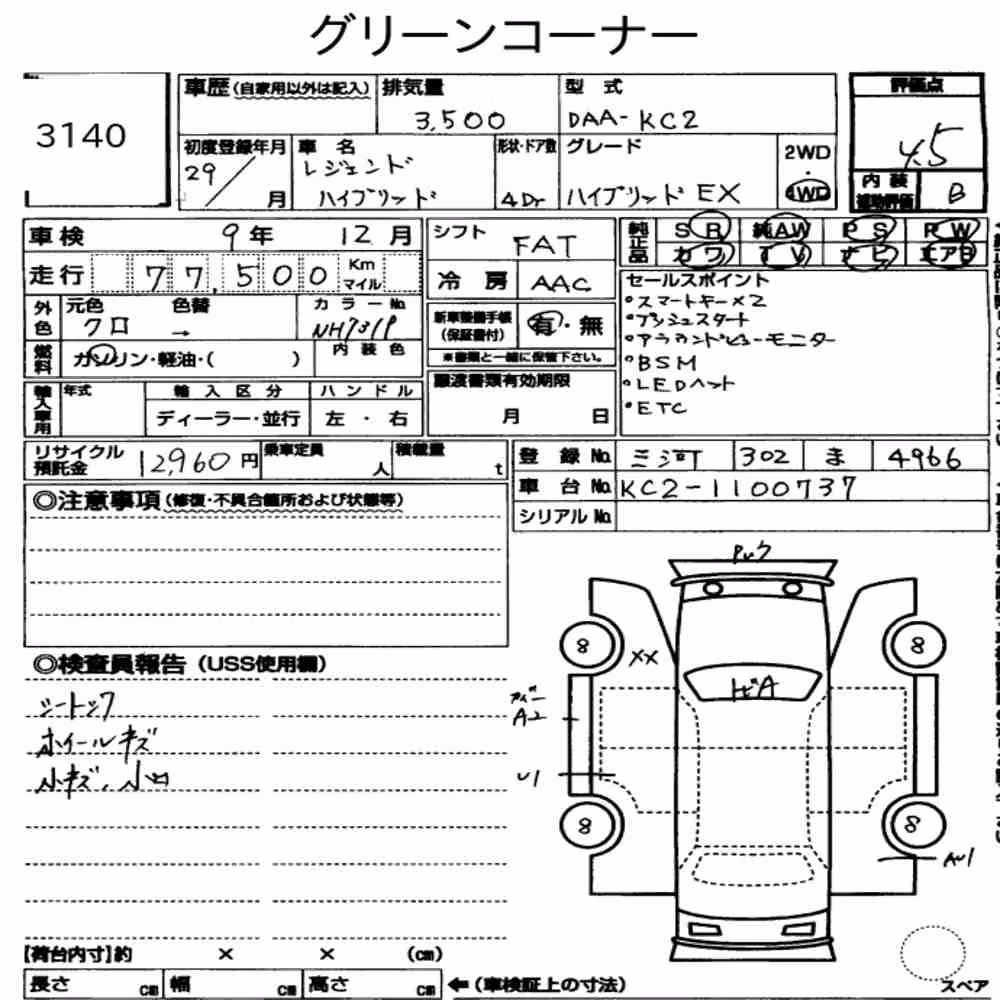 グリーンコーナー
3140
車歴(自家用以外は記入) 排気量 3,500 型式 DAA-KC2
初度登録年月 29/ 月 車名 レジェンド ハイブリッド 形状・ドア数 4Dr グレード ハイブリッド EX 2WD・4WD
評価点 4.5
内装補助評価 B
車検 9年 12月
走行 77,500 Km マイル
外色 元色 クロ 色替 → カラーNo. NH731P
燃料 ガソリン・軽油・( ) 内装色
輸入車用 年式 輸入区分 ディーラー・並行 ハンドル 左・右
シフト FAT
冷房 AAC
新車整備手帳(保証書付) 有・無
※書類と一緒に保管下さい。
譲渡書類有効期限 月 日
純正品 SR 純AW PS PW
カワ TV ナビ エアB
セールスポイント
・スマートキー×2
・プッシュスタート
・アラウンドビューモニター
・BSM
・LEDヘット
・ETC
リサイクル預託金 12,960円 乗車定員 人 積載量 t
登録No. 三河 302 ま 4966
車台No. KC2-1100737
シリアルNo.
◎注意事項(修復・不具合箇所および状態等)
◎検査員報告(USS使用欄)
シートシワ
ホイールキズ
小キズ、小凹
8 XX 8
トビA
A2
U1
8 8
AU1
【荷台内寸】約 × × (cm)
長さ cm 幅 cm 高さ cm ←(車検証上の寸法)
スペア